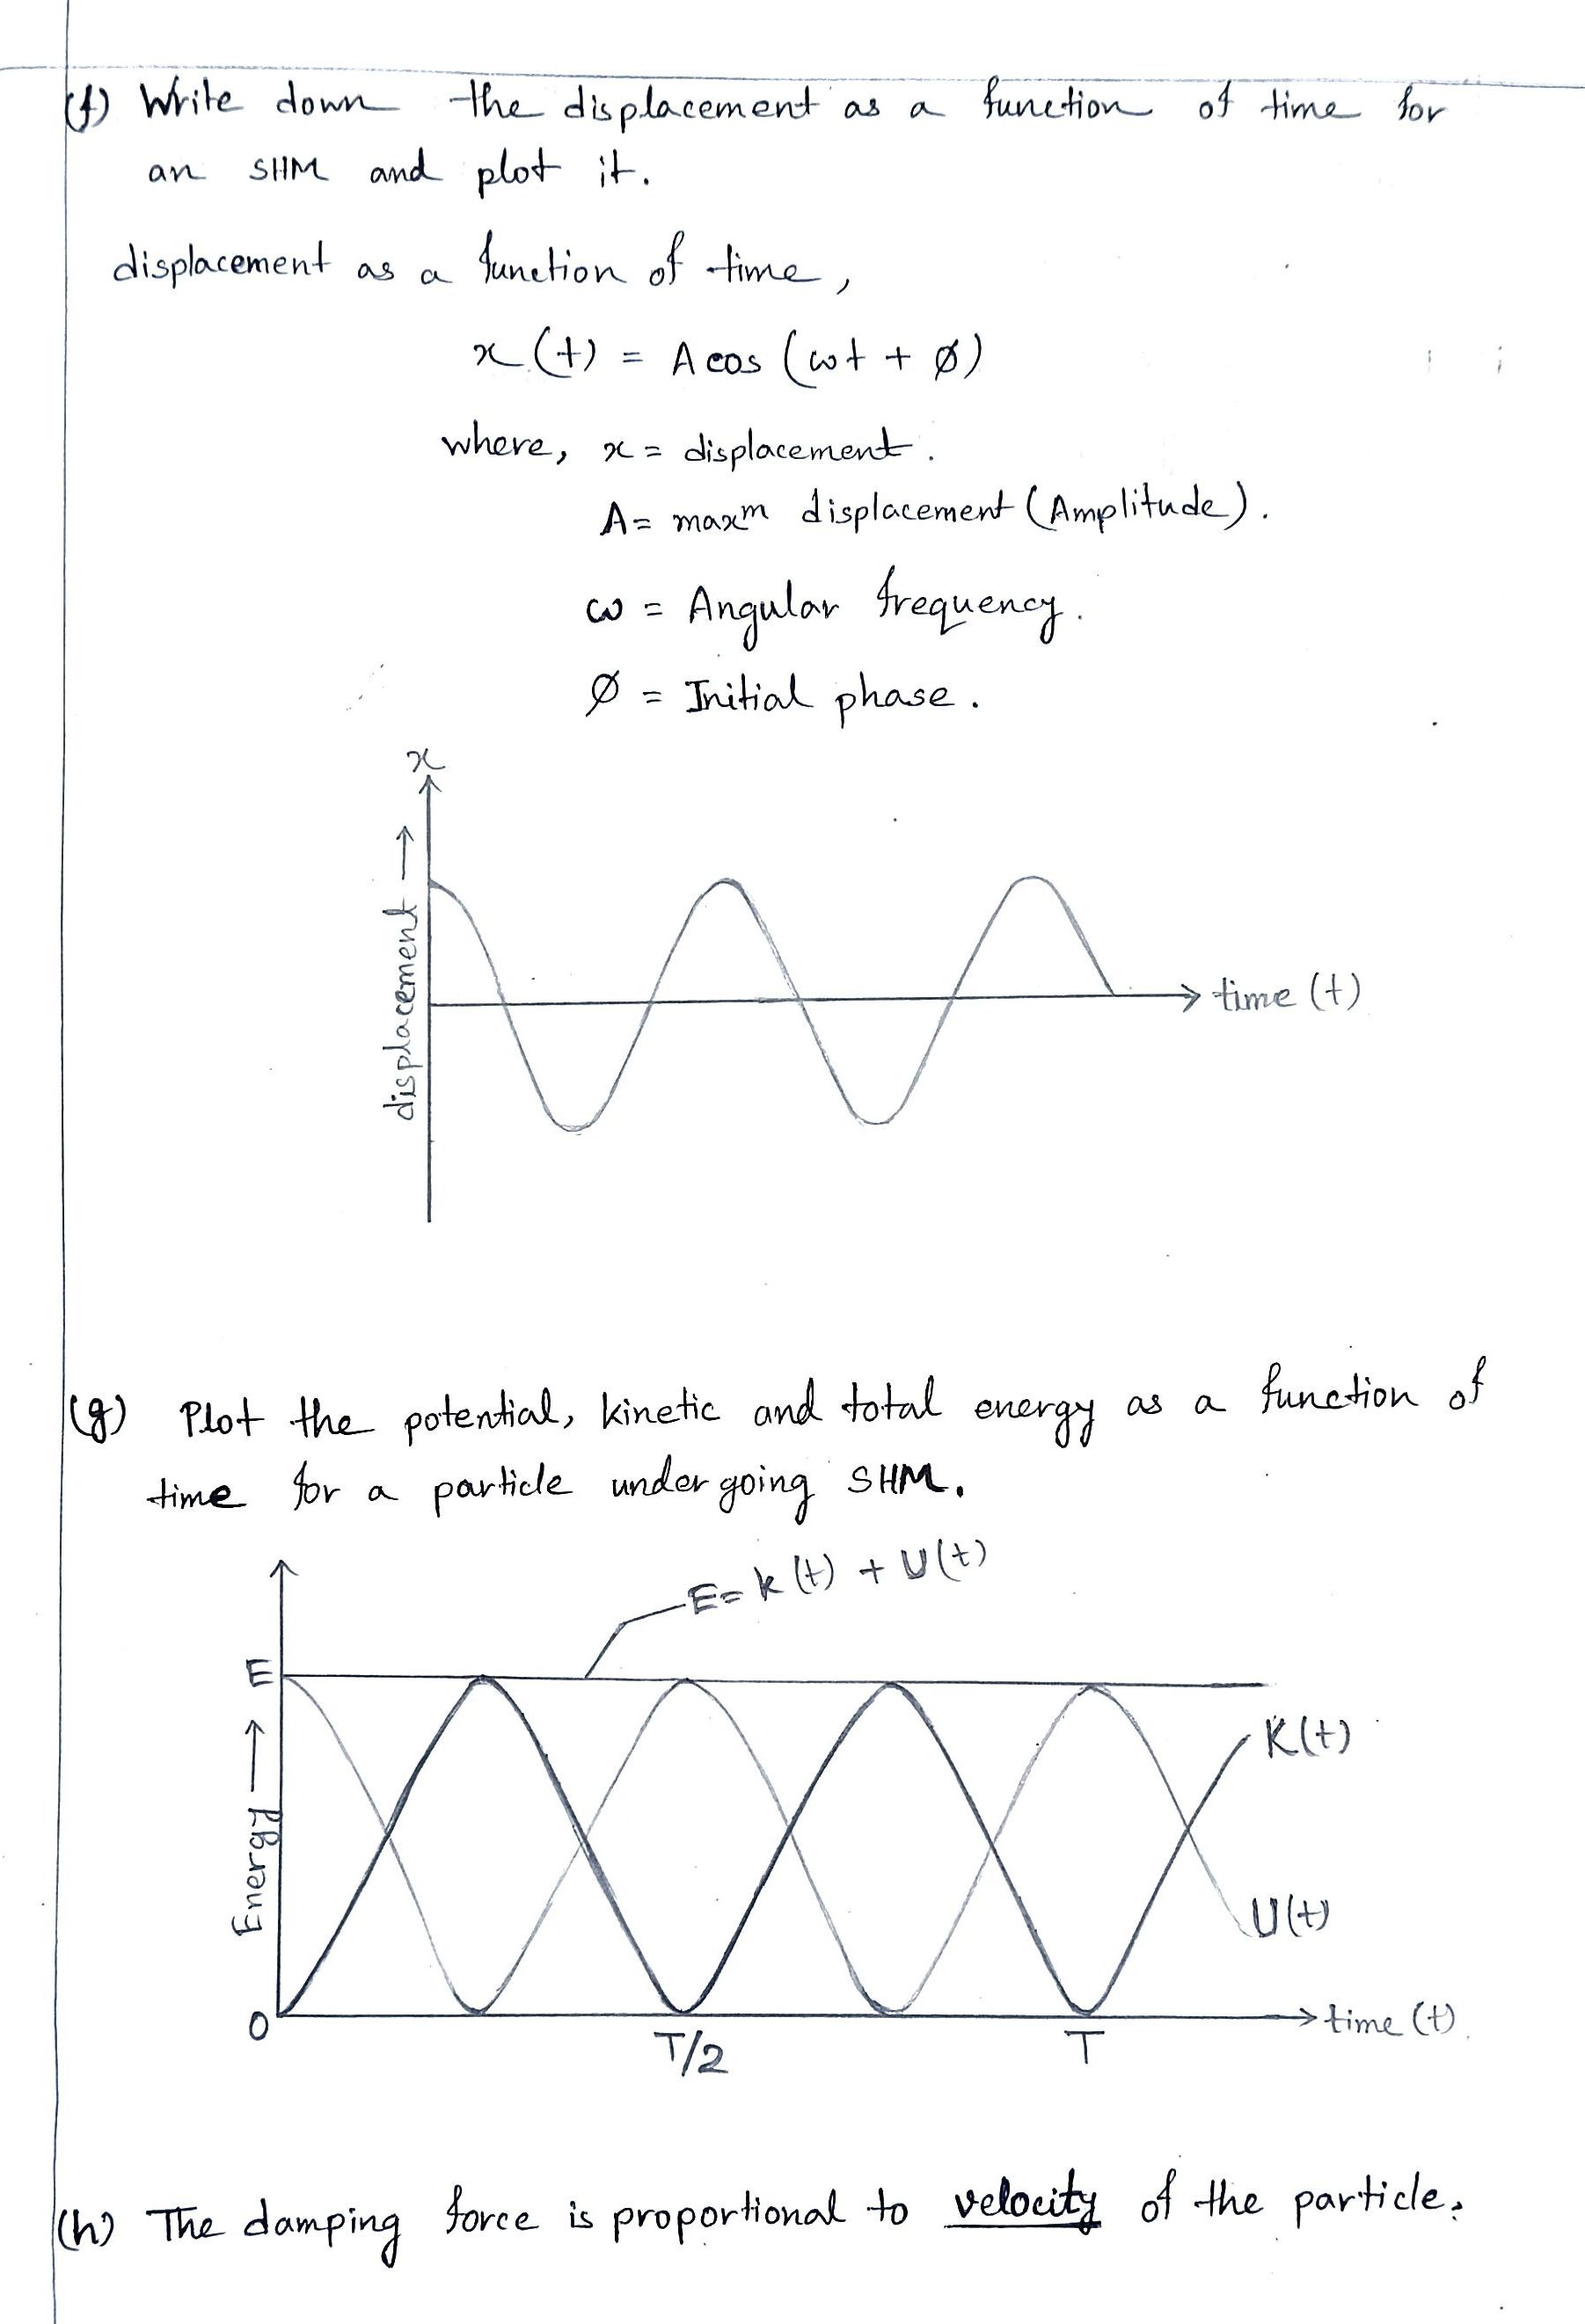 (f) Write down the displacement as a function of time for
an SHM and plot it.
displacement as a function of time,
x(t) = A cos (ωt + ø)
where, x = displacement.
A = maxm displacement (Amplitude).
ω = Angular frequency.
ø = Initial phase.
x
displacement →
→ time (t)
(g) Plot the potential, kinetic and total energy as a function of
time for a particle undergoing SHM.
E = K(t) + U(t)
E
K(t)
Energy →
U(t)
0
→ time (t)
T/2 T
(h) The damping force is proportional to velocity of the particle.